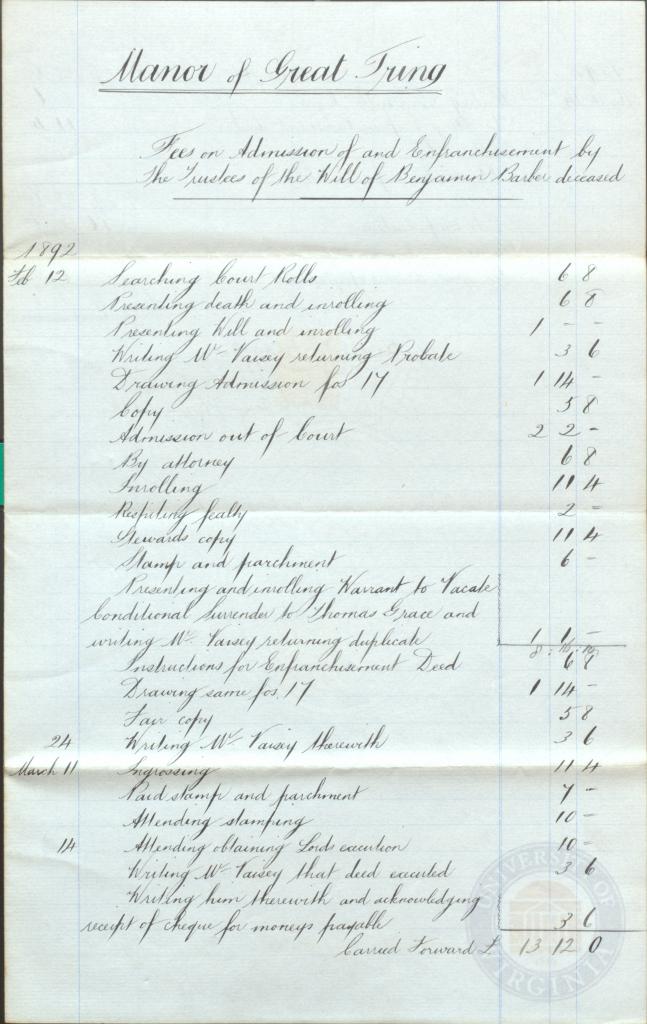 Manor of Great Tring
Fees on Admission of and Enfranchisement by
the Trustees of the Will of Benjamin Barber deceased
1892
Feb 12 Searching Court Rolls 6 8
Presenting death and inrolling 6 8
Presenting Will and inrolling 1 - -
Writing Mr Vaisey returning Probate 3 6
Drawing Admission fos 17 1 14 -
Copy 5 8
Admission out of Court 2 2 -
By attorney 6 8
Inrolling 11 4
Respiting fealty 2 -
Stewards copy 11 4
Stamp and parchment 6 -
Presenting and inrolling Warrant to Vacate
Conditional Surrender to Thomas Grace and
writing Mr Vaisey returning duplicate 1 1 -
Instructions for Enfranchisement Deed 6 8
Drawing same fos 17 1 14 -
Fair copy 5 8
24 Writing Mr Vaisey therewith 3 6
March 11 Ingrossing 11 4
Paid stamp and parchment 7 -
Attending stamping 10 -
14 Attending obtaining Lords execution 10 -
Writing Mr Vaisey that deed executed 3 6
Writing him therewith and acknowledging
receipt of cheque for moneys payable 3 6
Carried Forward £ 13 12 0
UNIVERSITY OF VIRGINIA